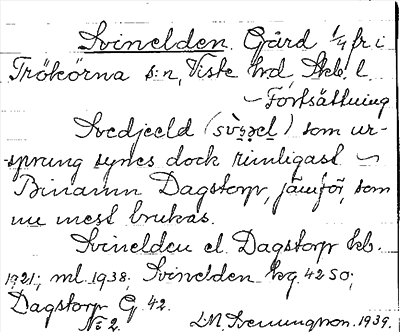 Svinelden. Gård 1/4 fr i
Trökörna s:n, Viste hd, Skb. l.
– Fortsättning
Svedjeeld (svə̀ɜəl) som ur-
sprung synes dock rimligast –
Binamn Dagstorp, jämför, som
nu mest brukas.
Svinelden el. Dagstorp kb.
1921; ml. 1938; Svinelden hg. 42 SO;
Dagstorp G 42.
No 2. 1939.